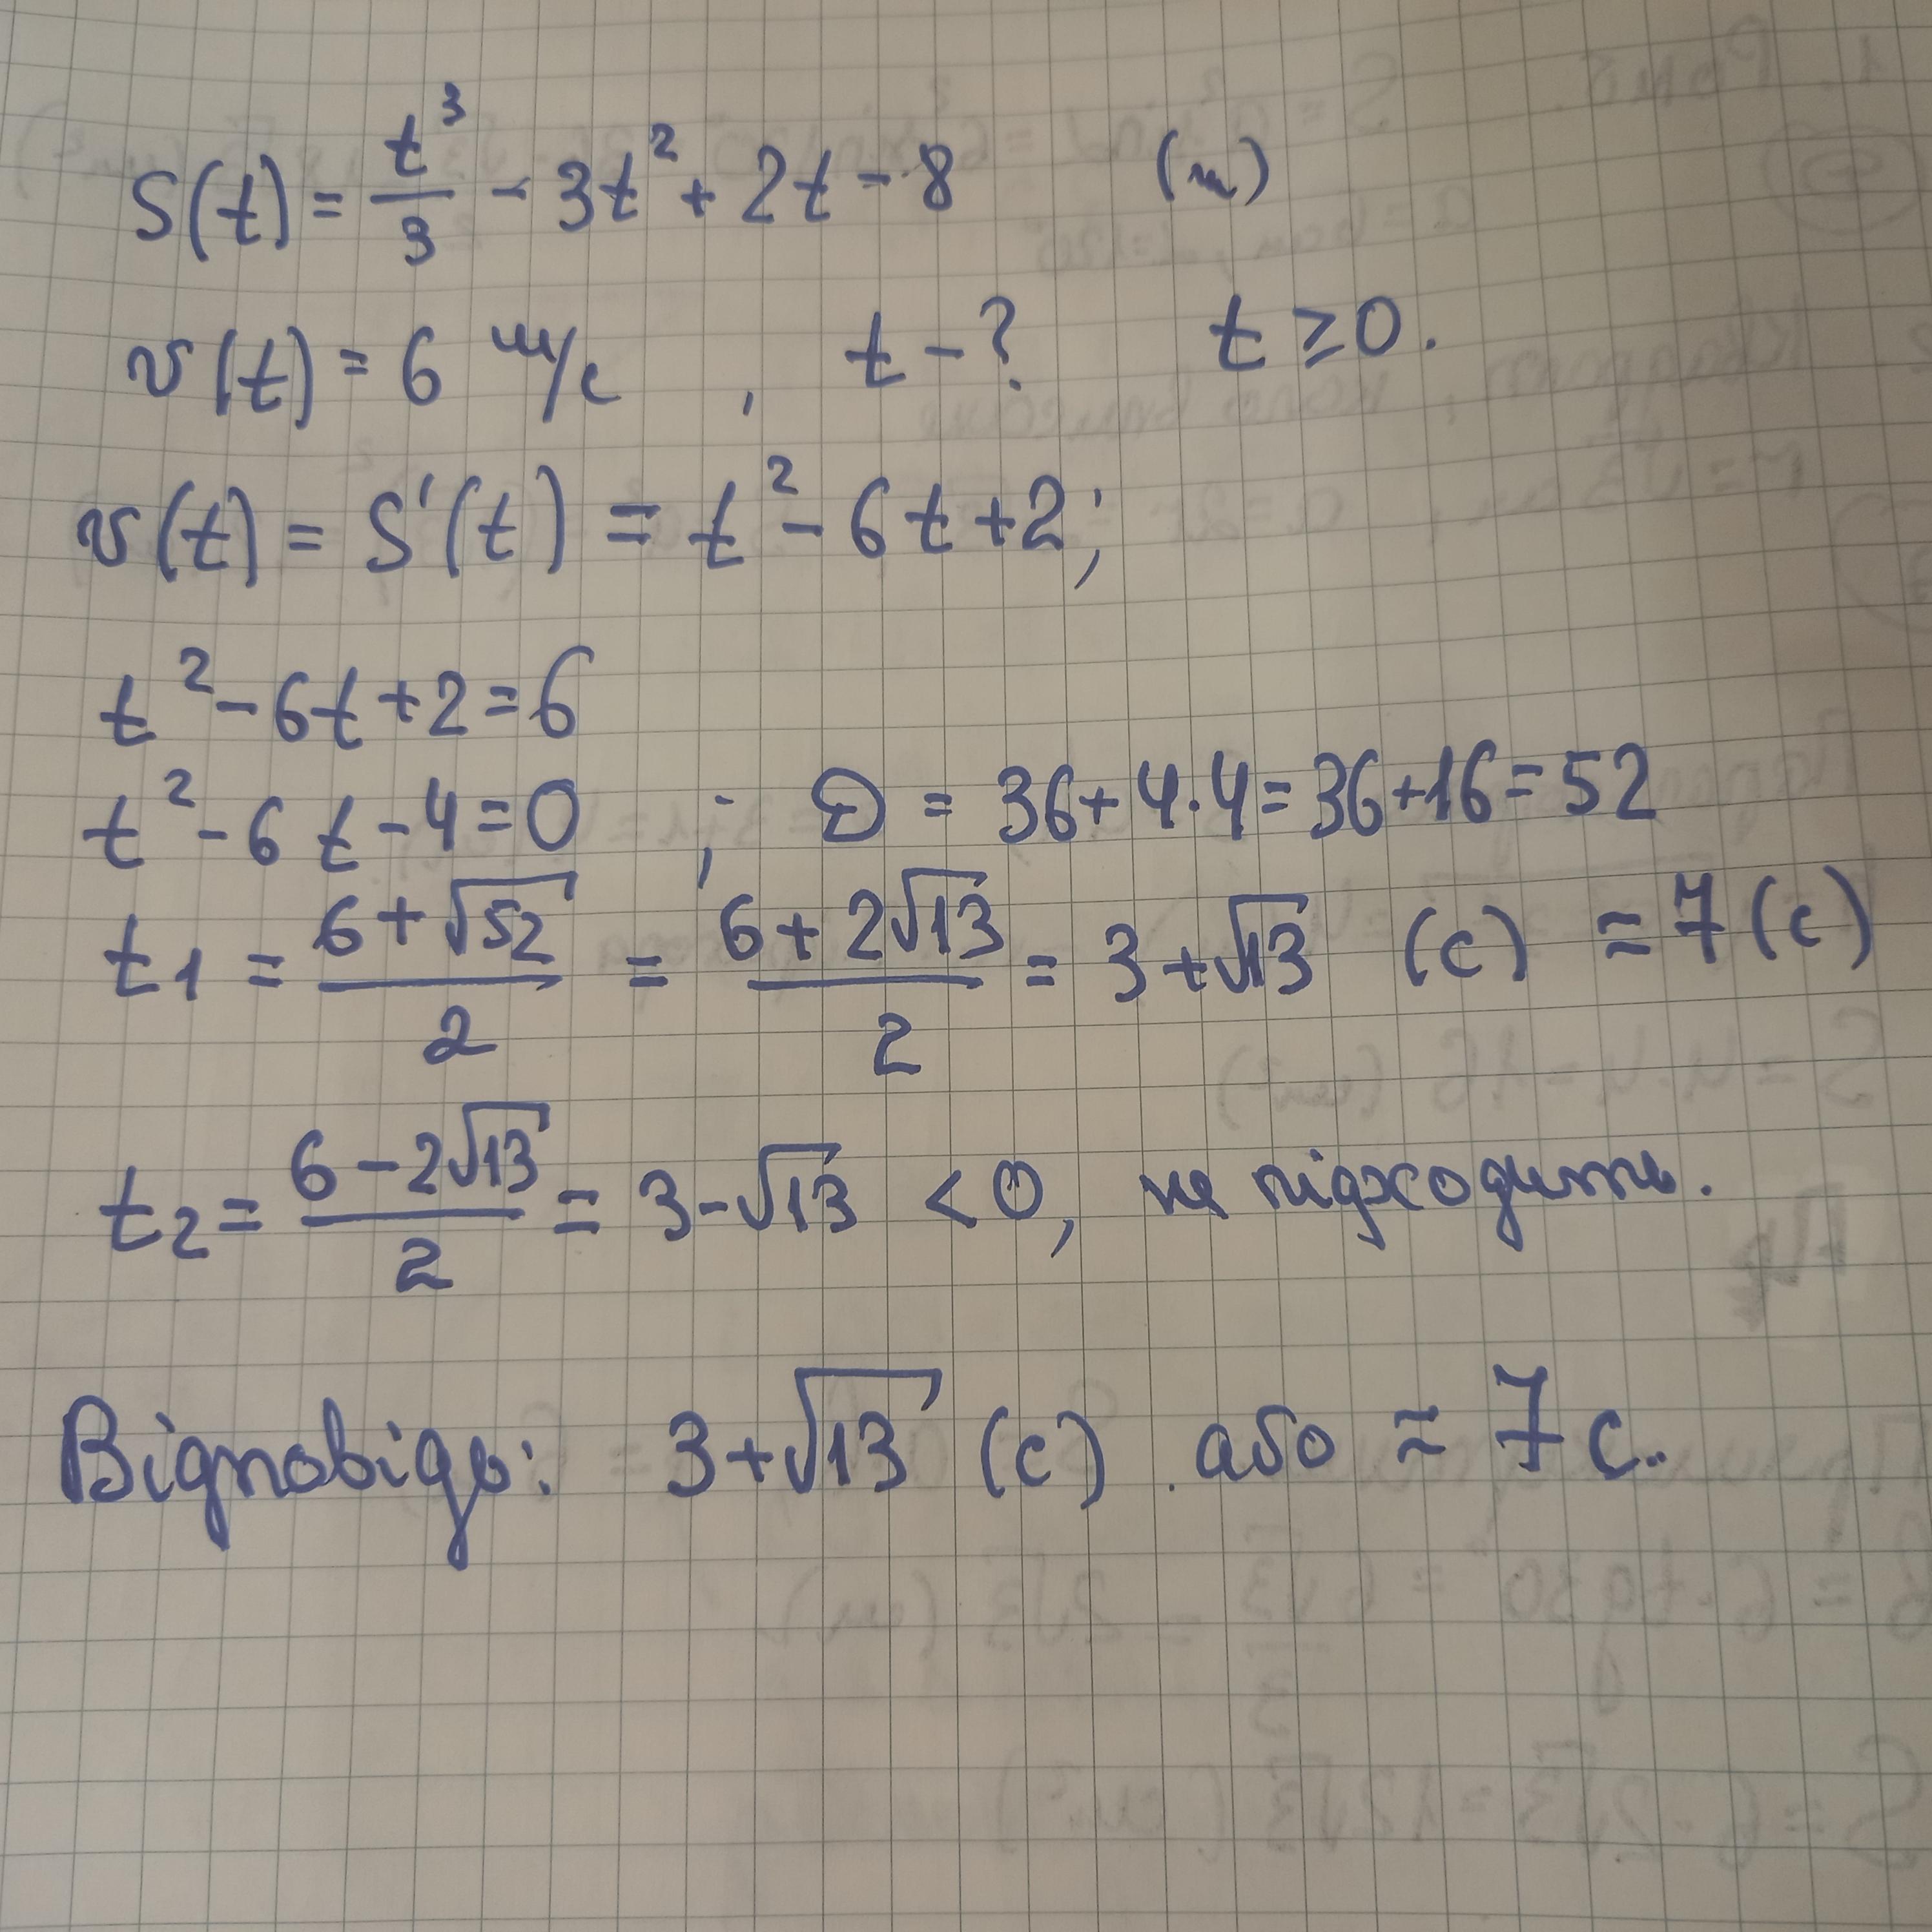 S(t) = t³/3 - 3t² + 2t - 8 (м)
v(t) = 6 м/с , t - ? t ≥ 0.
v(t) = S'(t) = t² - 6t + 2;
t² - 6t + 2 = 6
t² - 6t - 4 = 0 ; D = 36 + 4·4 = 36 + 16 = 52
t1 = (6 + √52)/2 = (6 + 2√13)/2 = 3 + √13 (с) ≈ 7 (с)
t2 = (6 - 2√13)/2 = 3 - √13 < 0, не підходить.
Відповідь: 3 + √13 (с). або ≈ 7 с.